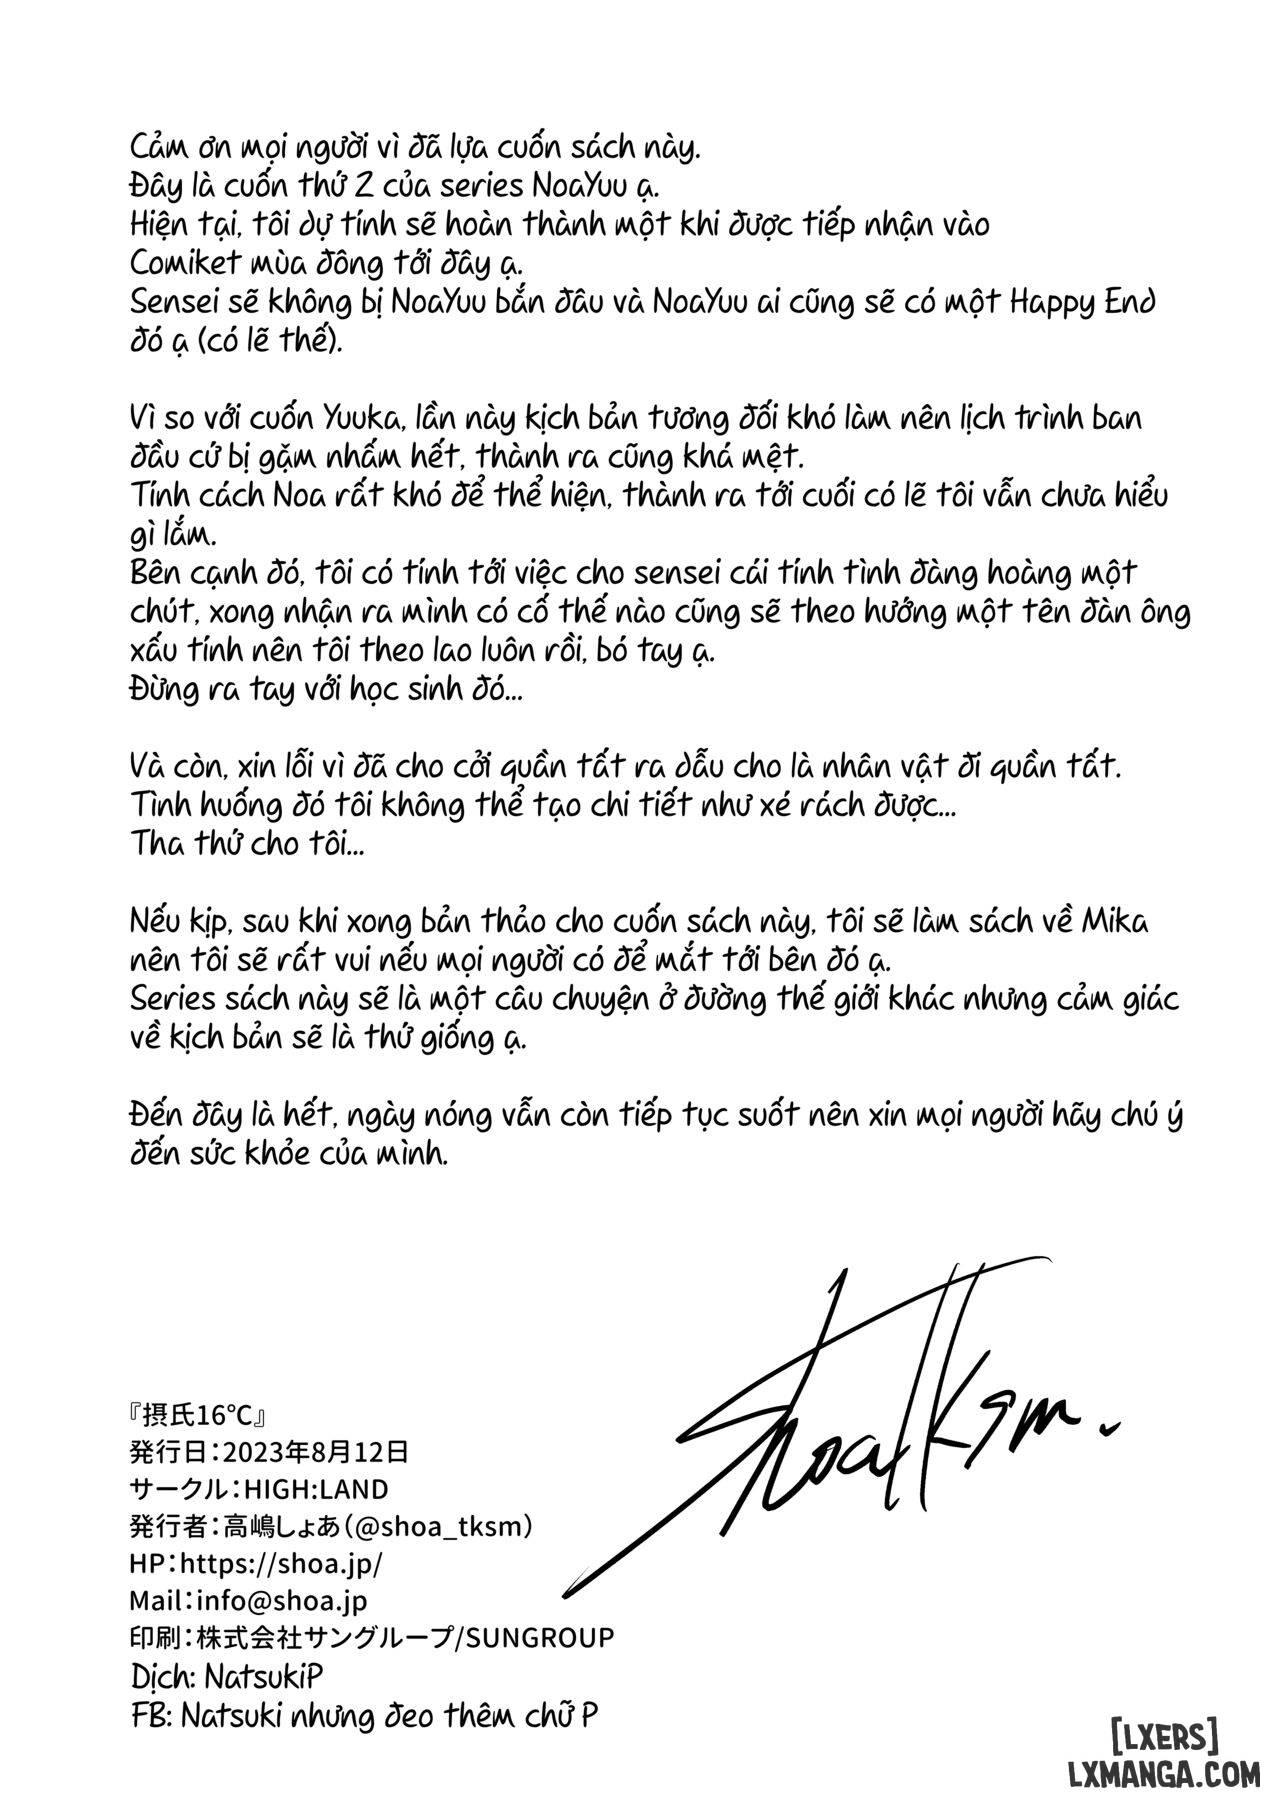 Cảm ơn mọi người vì đã lựa cuốn sách này.
Đây là cuốn thứ 2 của series NoaYuu ạ.
Hiện tại, tôi dự tính sẽ hoàn thành một khi được tiếp nhận vào
Comiket mùa đông tới đây ạ.
Sensei sẽ không bị NoaYuu bắn đâu và NoaYuu ai cũng sẽ có một Happy End
đó ạ (có lẽ thế).
Vì so với cuốn Yuuka, lần này kịch bản tương đối khó làm nên lịch trình ban
đầu cứ bị gặm nhấm hết, thành ra cũng khá mệt.
Tính cách Noa rất khó để thể hiện, thành ra tới cuối có lẽ tôi vẫn chưa hiểu
gì lắm.
Bên cạnh đó, tôi có tính tới việc cho sensei cái tính tình đàng hoàng một
chút, xong nhận ra mình có cố thế nào cũng sẽ theo hướng một tên đàn ông
xấu tính nên tôi theo lao luôn rồi, bó tay ạ.
Đừng ra tay với học sinh đó...
Và còn, xin lỗi vì đã cho cởi quần tất ra dẫu cho là nhân vật đi quần tất.
Tình huống đó tôi không thể tạo chi tiết như xé rách được...
Tha thứ cho tôi...
Nếu kịp, sau khi xong bản thảo cho cuốn sách này, tôi sẽ làm sách về Mika
nên tôi sẽ rất vui nếu mọi người có để mắt tới bên đó ạ.
Series sách này sẽ là một câu chuyện ở đường thế giới khác nhưng cảm giác
về kịch bản sẽ là thứ giống ạ.
Đến đây là hết, ngày nóng vẫn còn tiếp tục suốt nên xin mọi người hãy chú ý
đến sức khỏe của mình.
Shoa Tksm.
『摂氏16℃』
発行日：2023年8月12日
サークル：HIGH:LAND
発行者：高嶋しょあ（@shoa_tksm）
HP：https://shoa.jp/
Mail：info@shoa.jp
印刷：株式会社サングループ/SUNGROUP
Dịch: NatsukiP
FB: Natsuki nhưng đeo thêm chữ P
[LXERS]
LXMANGA.COM